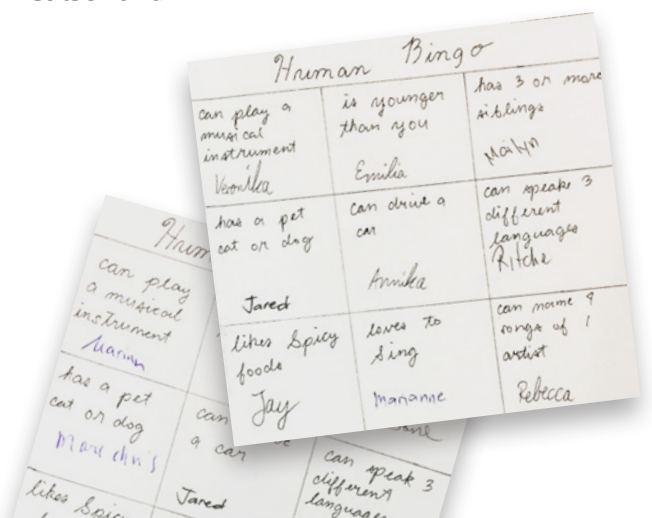 Human Bingo
can play a
musical
instrument
Veronika
is younger
than you
Emilia
has 3 or more
siblings
Mailyn
has a pet
cat or dog
Jared
can drive a
car
Annika
can speak 3
different
languages
Ritche
likes Spicy
foods
Jay
loves to
Sing
Marianne
can name 4
songs of 1
artist
Rebecca
Hum
can play
a musical
instrument
Marian
has a pet
cat or dog
can
a car
Jared
can speak 3
different
languages
likes Spicy